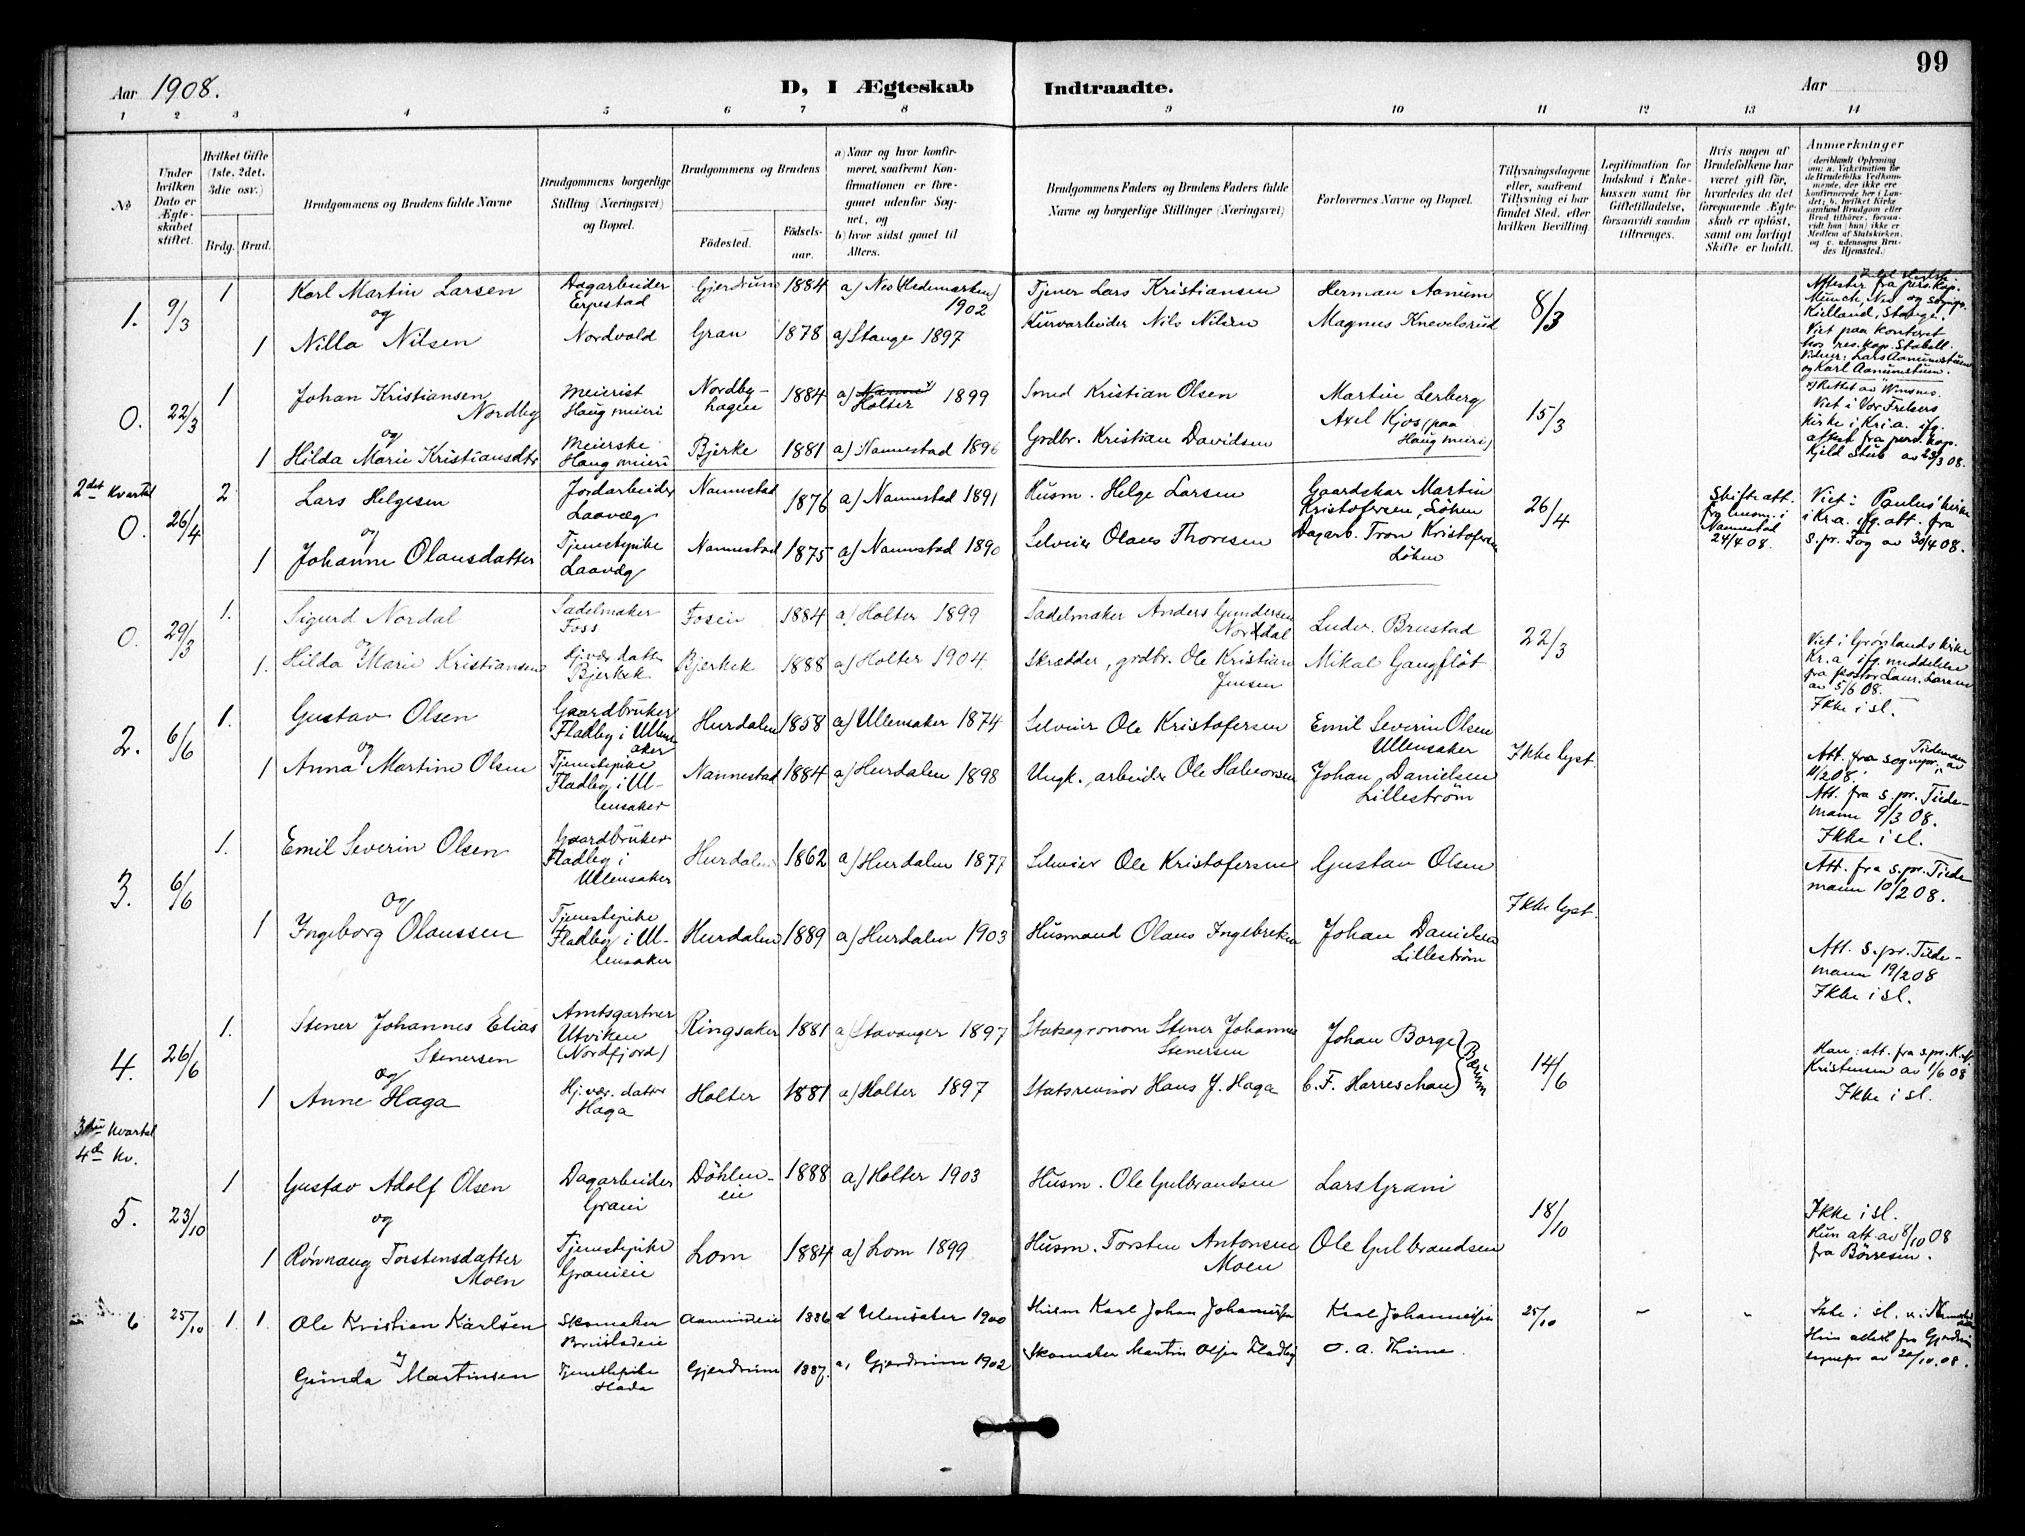 99
Aar 1908. D, I Ægteskab Indtraadte. Aar
1 2 3 4 5 6 7 8 9 10 11 12 13 14
No
Under hvilken Dato er Ægteskabet stiftet.
Hvilket Gifte (1ste, 2det, 3die osv.)
Brdg. Brud.
Brudgommens og Brudens fulde Navne
Brudgommens borgerlige Stilling (Næringsvei) og Bopæl.
Brudgommens og Brudens
Födested.
Födselsaar.
a) Naar og hvor konfirmeret, saafremt Konfirmationen er foregaaet udenfor Sognet, og
b) hvor sidst gaaet til Alters.
Brudgommens Faders og Brudens Faders fulde Navne og borgerlige Stillinger (Næringsvei)
Forlovernes Navne og Bopæl.
Tillysningsdagene eller, saafremt Tillysning ei har fundet Sted, efter hvilken Bevilling.
Legitimation for Indskud i Enkekassen samt for Giftetilladelse, forsaavidt saadan tiltrænges.
Hvis nogen af Brudefolkene har været gift för, hvorledes da det foregaaende Ægteskab er oplöst, samt om lovligt Skifte er holdt.
Anmerkninger (deriblandt Oplysning om: a. Vakcination for de Brudefolks Vedkommende, der ikke ere konfirmerede her i Landet; b. hvilket Kirkesamfund Brudgom eller Brud tilhörer, forsaavidt han (hun) ikke er Medlem af Statskirken, og c. udensogns Brudes Hjemsted.)
1. 9/3 1 Karl Martin Larsen Dagarbeider Erpestad Gjerdrum 1884 a) Nes (Hedemarken) 1902 Tjener Lars Kristiansen Herman Aanum 8/3
og
1 Nilla Nilsen Nordvold Gran 1878 a) Stange 1897 Kurvarbeider Nils Nilsen Magnus Knevelsrud
Attester fra pers. kap. Munch, Nes og sognepr. Kielland, Stange. Viet paa kontoret hos res. kap. Stabell. Vidner: Lars Aanumstuen og Karl Aanumstuen.
0. 22/3 1 Johan Kristiansen Nordby Meierist Haug meieri Nordbyhagen 1884 a) Holter 1899 Smed Kristian Olsen Martin Lerberg 15/3
og
1 Hilda Marie Kristiansdtr Meierske Haug meieri Bjerke 1881 a) Nannestad 1896 Grdbr. Kristian Davidsen Axel Kjos (paa Haug meieri)
Viet i Vor Frelsers kirke i Kr.a. ifg. attest fra pers. kap. Kjeld Stub av 23/3 08.
2det Kvartal
0. 26/4 2 Lars Helgesen Jordarbeider Laavæg Nannestad 1876 a) Nannestad 1891 Husm. Helge Larsen Gaardskar Martin Kristofersen, Löken 26/4
og
1 Johanne Olausdatter Tjenestepike Laavæg Nannestad 1875 a) Nannestad 1890 Selveier Olaus Thoresen Dagarb. Tron Kristofersen Löken
Skifte att. fra lensm. i Nannestad 24/4 08.
Viet i Paulus' kirke i Kr.a. ifg. att. fra s. pr. Fog av 30/4 08.
0. 29/3 1. Sigurd Nordal Sadelmaker Foss Fosen 1884 a) Holter 1899 Sadelmaker Anders Gundersen Nordal Ludv. Brustad 22/3
og
1. Hilda Marie Kristiansen Hj.vær. datter Bjerkek Bjerkek 1888 a) Holter 1904. Skrædder, grdbr. Ole Kristian Jensen Mikal Gangflöt
Viet i Grønlands kirke Kr.a. ifg. meddelelse fra pastor Laur. Larsen av 5/6 08.
2. 6/6 1. Gustav Olsen Gaardbruker Fladby i Ullensaker Hurdalen 1858 a) Ullensaker 1874 Selveier Ole Kristofersen Emil Severin Olsen Ullensaker Ikke lyst.
og
1 Anna Martine Olsen Tjenestepike Fladby i Ullensaker Nannestad 1884 a) Hurdalen 1898 Ungk., arbeider Ole Halvorsen Johan Danielsen Lilleström
Ikke i sl.
Att. fra sognepr. Tidemann av 11/2 08.
Att. fra s. pr. Tidemann 9/3 08.
3. 6/6 1. Emil Severin Olsen Gaardbruker Fladby i Ullensaker Hurdalen 1862 a) Hurdalen 1877 Selveier Ole Kristofersen Gustav Olsen Ikke lyst.
og
1 Ingeborg Olaussen Tjenestepike Fladby i Ullensaker Hurdalen 1889 a) Hurdalen 1903 Husmand Olaus Ingebretsen Johan Danielsen Lilleström
Ikke i sl.
Att. fra s. pr. Tidemann 10/2 08.
Att. s. pr. Tidemann 19/2 08
4. 26/6 1. Stener Johannes Elias Stenersen Amtsgartner Utviken (Nordfjord) Ringsaker 1881 a) Stavanger 1897 Statsagronom Stener Johannes Stenersen Johan Borge 14/6
og
1 Anne Haga Hj. vær. datter Haga Holter 1881 a) Holter 1897 Statsrevisor Hans J. Haga C. F. Harreschou Bærum
Ikke i sl.
Han: att. fra s. pr. Kristensen av 1/6 08
Ikke i sl.
3die Kvartal
4de Kv.
5. 23/10 1 Gustav Adolf Olsen Dagarbeider Grani Döhleneie 1888 a) Holter 1903 Husm. Ole Gulbrandsen Lars Grani 18/10
og
1 Rönnaug Torstensdatter Moen Tjenestepike Granieie Lom 1884 a) Lom 1899 Husm. Torsten Antonsen Moen Ole Gulbrandsen
Ikke i sl.
Hun att. av 8/10 08 fra Börresen.
6 25/10 1. 1. Ole Kristian Karlsen Skomaker Aanumseie 1886 a Ullensaker 1900 Husm Karl Johan Johannessen Karl Johannessen 25/10 - -
og
Gunda Martinsen Tjenestepike Gjerdrum 1887. a, Gjerdrum 1902 Skomaker Martin Olsen Fladby O. A. Thime.
Ikke i sl.
Hun attest fra Gjerdrum sognepr av 20/10. 08.